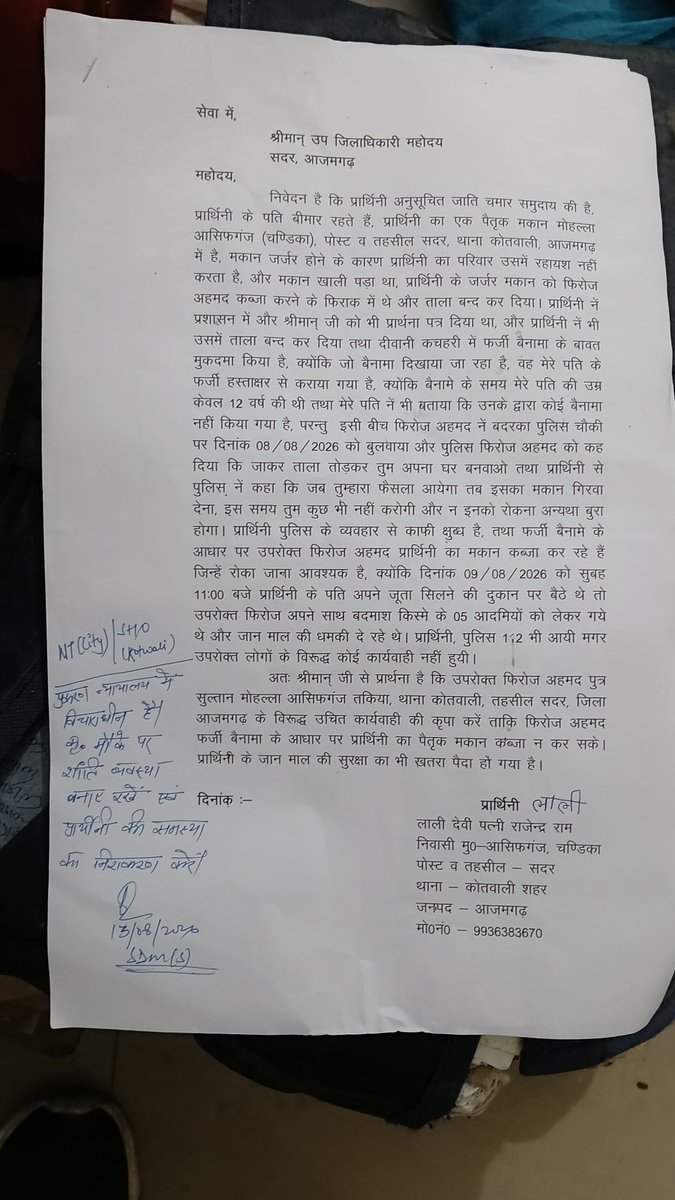 सेवा में,
श्रीमान् उप जिलाधिकारी महोदय
सदर, आजमगढ़
महोदय,
निवेदन है कि प्रार्थिनी अनुसूचित जाति चमार समुदाय की है,
प्रार्थिनी के पति बीमार रहते हैं, प्रार्थिनी का एक पैतृक मकान मोहल्ला
आसिफगंज (चण्डिका), पोस्ट व तहसील सदर, थाना कोतवाली, आजमगढ़
में है, मकान जर्जर होने के कारण प्रार्थिनी का परिवार उसमें रहायश नहीं
करता है, और मकान खाली पड़ा था, प्रार्थिनी के जर्जर मकान को फिरोज
अहमद कब्जा करने के फिराक में थे और ताला बन्द कर दिया। प्रार्थिनी नें
प्रशासन में और श्रीमान् जी को भी प्रार्थना पत्र दिया था, और प्रार्थिनी नें भी
उसमें ताला बन्द कर दिया तथा दीवानी कचहरी में फर्जी बैनामा के बावत
मुकदमा किया है, क्योंकि जो बैनामा दिखाया जा रहा है, वह मेरे पति के
फर्जी हस्ताक्षर से कराया गया है, क्योंकि बैनामे के समय मेरे पति की उम्र
केवल 12 वर्ष की थी तथा मेरे पति नें भी बताया कि उनके द्वारा कोई बैनामा
नहीं किया गया है, परन्तु इसी बीच फिरोज अहमद नें बदरका पुलिस चौकी
पर दिनांक 08/08/2026 को बुलवाया और पुलिस फिरोज अहमद को कह
दिया कि जाकर ताला तोड़कर तुम अपना घर बनवाओ तथा प्रार्थिनी से
पुलिस नें कहा कि जब तुम्हारा फैसला आयेगा तब इसका मकान गिरवा
देना, इस समय तुम कुछ भी नहीं करोगी और न इनको रोकना अन्यथा बुरा
होगा। प्रार्थिनी पुलिस के व्यवहार से काफी क्षुब्ध है, तथा फर्जी बैनामे के
आधार पर उपरोक्त फिरोज अहमद प्रार्थिनी का मकान कब्जा कर रहे हैं
जिन्हें रोका जाना आवश्यक है, क्योंकि दिनांक 09/08/2026 को सुबह
11:00 बजे प्रार्थिनी के पति अपने जूता सिलने की दुकान पर बैठे थे तो
उपरोक्त फिरोज अपने साथ बदमाश किस्मे के 05 आदमियों को लेकर गये
थे और जान माल की धमकी दे रहे थे। प्रार्थिनी, पुलिस 112 भी आयी मगर
उपरोक्त लोगों के विरूद्ध कोई कार्यवाही नहीं हुयी।
अतः श्रीमान् जी से प्रार्थना है कि उपरोक्त फिरोज अहमद पुत्र
सुल्तान मोहल्ला आसिफगंज तकिया, थाना कोतवाली, तहसील सदर, जिला
आजमगढ़ के विरूद्ध उचित कार्यवाही की कृपा करें ताकि फिरोज अहमद
फर्जी बैनामा के आधार पर प्रार्थिनी का पैतृक मकान कब्जा न कर सके।
प्रार्थिनी के जान माल की सुरक्षा का भी खतरा पैदा हो गया है।
दिनांक :–
प्रार्थिनी लाली
लाली देवी पत्नी राजेन्द्र राम
निवासी मु0–आसिफगंज, चण्डिका
पोस्ट व तहसील – सदर
थाना – कोतवाली शहर
जनपद – आजमगढ़
मो0नं0 – 9936383670
NT(City)/SHO
(Kotwali)
प्रकरण न्यायालय में
विचाराधीन है।
कृ0 मौके पर
शांति व्यवस्था
बनाए रखें एवं
प्रार्थीनी की समस्या
का निराकरण करें।
13/08/2026
SDM(S)